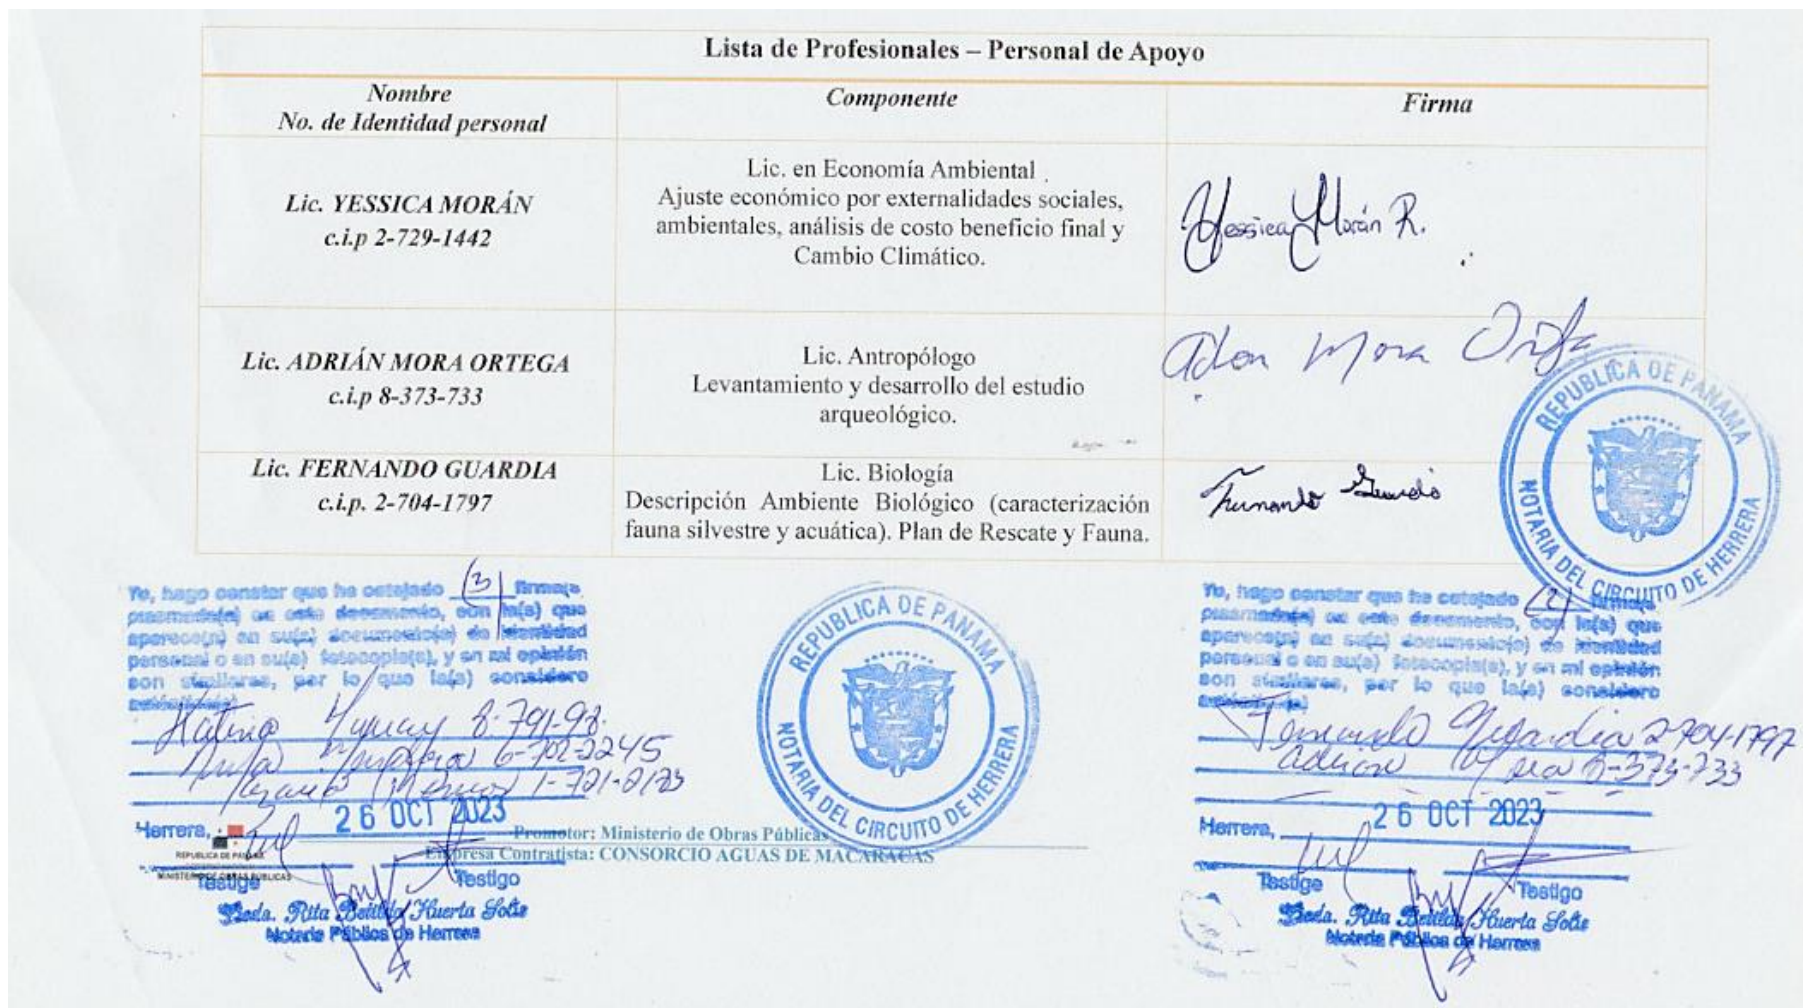 Lista de Profesionales – Personal de Apoyo
Nombre
No. de Identidad personal
Componente
Firma
Lic. YESSICA MORÁN
c.i.p 2-729-1442
Lic. en Economía Ambiental
Ajuste económico por externalidades sociales,
ambientales, análisis de costo beneficio final y
Cambio Climático.
Yessica Morán R.
Lic. ADRIÁN MORA ORTEGA
c.i.p 8-373-733
Lic. Antropólogo
Levantamiento y desarrollo del estudio
arqueológico.
Mora
Lic. FERNANDO GUARDIA
c.i.p. 2-704-1797
Lic. Biología
Descripción Ambiente Biológico (caracterización
fauna silvestre y acuática). Plan de Rescate y Fauna.
Fernando Guardia
REPUBLICA DE PANAMA
NOTARIA DEL CIRCUITO DE HERRERA
Yo, hago constar que he cotejado (3) firma(s
plasmada(s) en este documento, con la(s) que
aparece(n) en su(s) documento(s) de identidad
personal o en su(s) fotocopia(s), y en mi opinión
son similares, por lo que la(s) considero
8-791-98
6-702-2245
1-721-2183
Herrera, 26 OCT 2023
Testigo Testigo
Licda. Rita Betilda Huerta Solis
Notaria Pública de Herrera
REPUBLICA DE PANAMA
NOTARIA DEL CIRCUITO DE HERRERA
REPUBLICA DE PANAMA
MINISTERIO DE OBRAS PUBLICAS
Promotor: Ministerio de Obras Públicas
Empresa Contratista: CONSORCIO AGUAS DE MACARACAS
Yo, hago constar que he cotejado (2) firma(s
plasmada(s) en este documento, con la(s) que
aparece(n) en su(s) documento(s) de identidad
personal o en su(s) fotocopia(s), y en mi opinión
son similares, por lo que la(s) considero
Fernando Guardia 2-704-1797
Adrian Mora 8-373-733
Herrera, 26 OCT 2023
Testigo Testigo
Licda. Rita Betilda Huerta Solis
Notaria Pública de Herrera